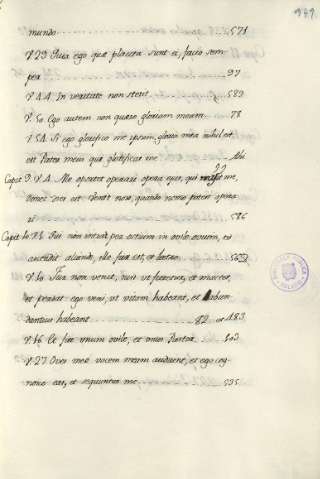 949.
mundo 571
V.29. Quia ego quæ placita sunt ei, facio sem
per 97
V.44. In veritate non stetit 589
V.50. Ego autem non quæro gloriam meam 78
V.54. Si ego glorifico me ipsum, gloria mea nihil est,
est Pater meus qui glorificat me
Caput 9. V.4. Me oportet operari opera ejus, qui me,
donec dies est venit nox, quando nemo potest opera
ri 586
Caput 10. V.1. Qui non intrat per ostium in ovile ovium,
ascendit aliunde, ille fur est, et latro
V.10. Fur non venit, nisi ut furetur, et mactet,
et perdat ego veni, ut vitam habeant, et
habeant 82 et 483
V.16. Et fiet unum ovile, et unus Pastor 503
V.27. Oves meæ vocem meam audiunt, et ego cog-
nosco eas, et sequuntur me 535